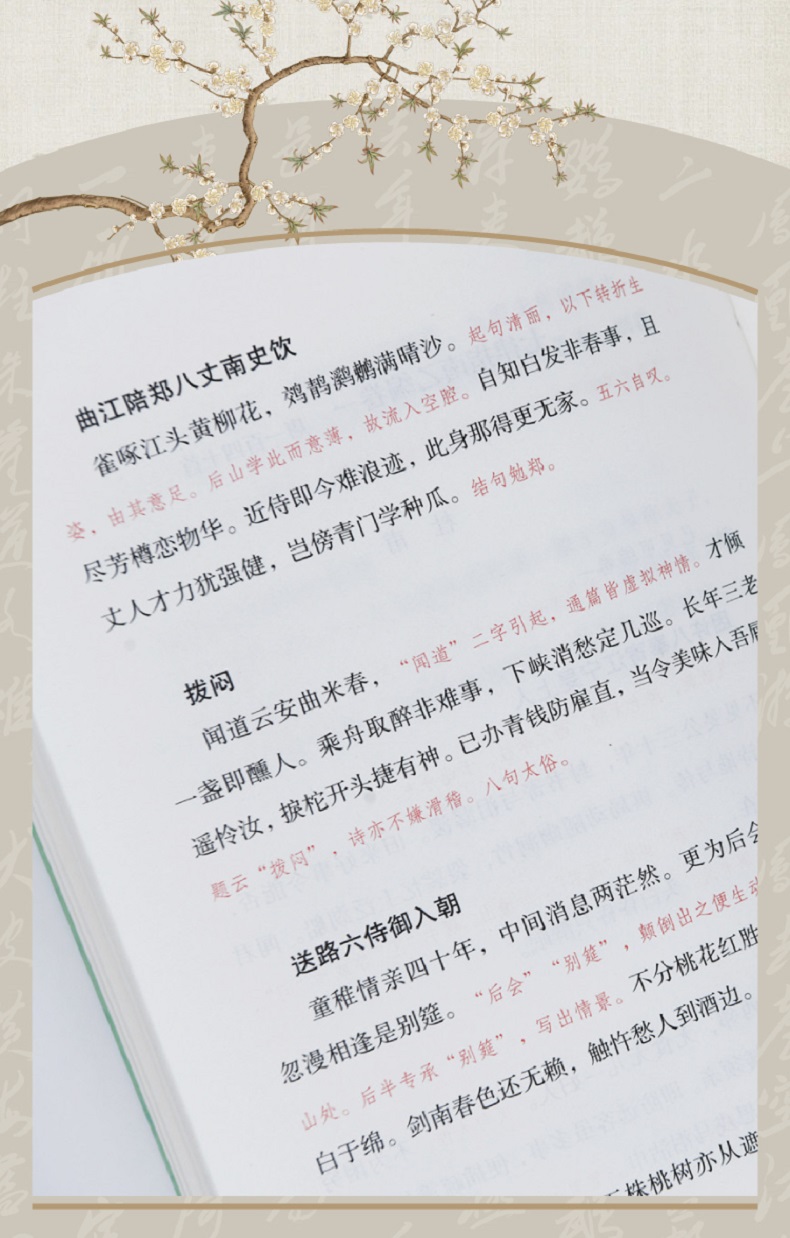 曲江陪郑八丈南史饮
雀啄江头黄柳花，䴔䴖㶉𫛶满晴沙。起句清丽，以下转折生
姿，由其意足。后山学此而意薄，故流入空腔。自知白发非春事，且
尽芳樽恋物华。近侍即今难浪迹，此身那得更无家。五六自叹。
丈人才力犹强健，岂傍青门学种瓜。结句勉郑。
拨闷
闻道云安曲米春，“闻道”二字引起，通篇皆虚拟神情。才倾
一盏即醺人。乘舟取醉非难事，下峡消愁定几巡。长年三老
遥怜汝，捩柁开头捷有神。已办青钱防雇直，当令美味入吾唇
题云“拨闷”，诗亦不嫌滑稽。八句大俗。
送路六侍御入朝
童稚情亲四十年，中间消息两茫然。更为后会
忽漫相逢是别筵。“后会”“别筵”，颠倒出之便生动
山处。后半专承“别筵”，写出情景。不分桃花红胜
白于绵。剑南春色还无赖，触忤愁人到酒边。
株桃树亦从遮